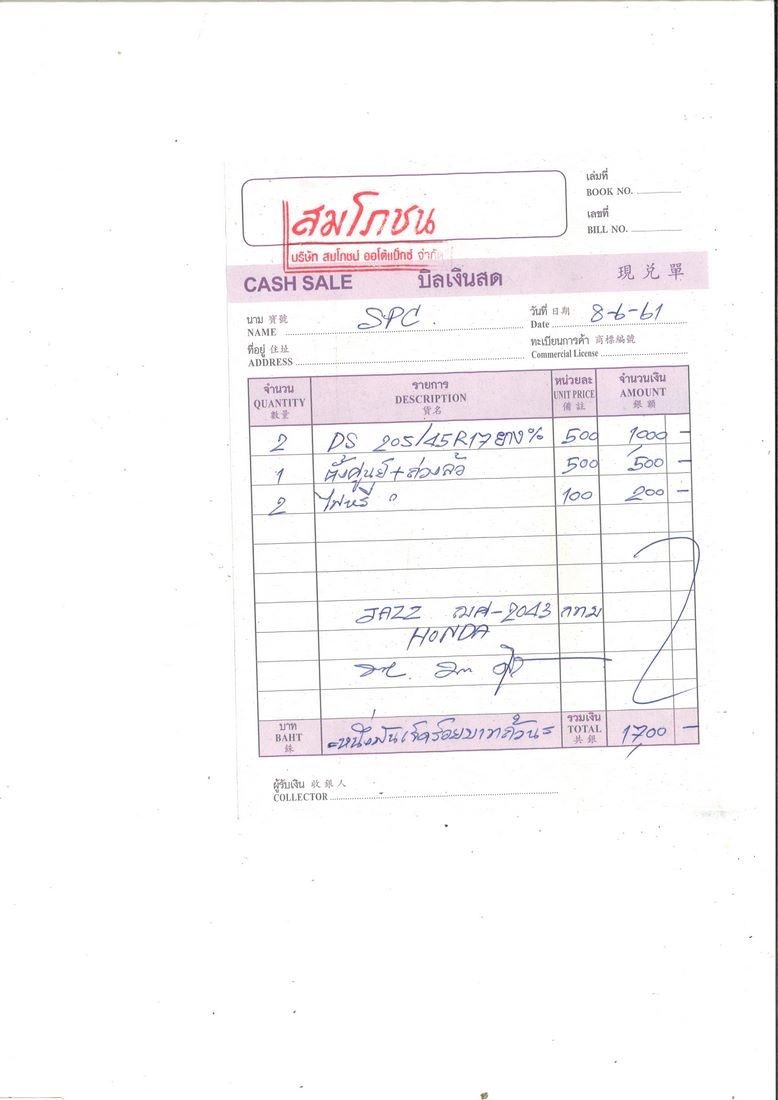 เล่มที่
BOOK NO.
เลขที่
BILL NO.
สมโภชน์
บริษัท สมโภชน์ ออโต้แม็กซ์ จำกัด
CASH SALE บิลเงินสด 現兌單
นาม 寶號 NAME SPC.
วันที่ 日期 Date 8-6-61
ที่อยู่ 住址 ADDRESS
ทะเบียนการค้า 商標編號 Commercial License
จำนวน รายการ หน่วยละ จำนวนเงิน
QUANTITY DESCRIPTION UNIT PRICE AMOUNT
數量 貨名 備註 銀額
2 DS 205/45R17 ยาง% 500 1000 -
1 ตั้งศูนย์+ถ่วงล้อ 500 500 -
2 ไฟหรี่ 100 200 -
JAZZ 2043 กทม
HONDA
บาท รวมเงิน
BAHT =หนึ่งพันเจ็ดร้อยบาทถ้วน= TOTAL 1700 -
銖 共銀
ผู้รับเงิน 收銀人
COLLECTOR